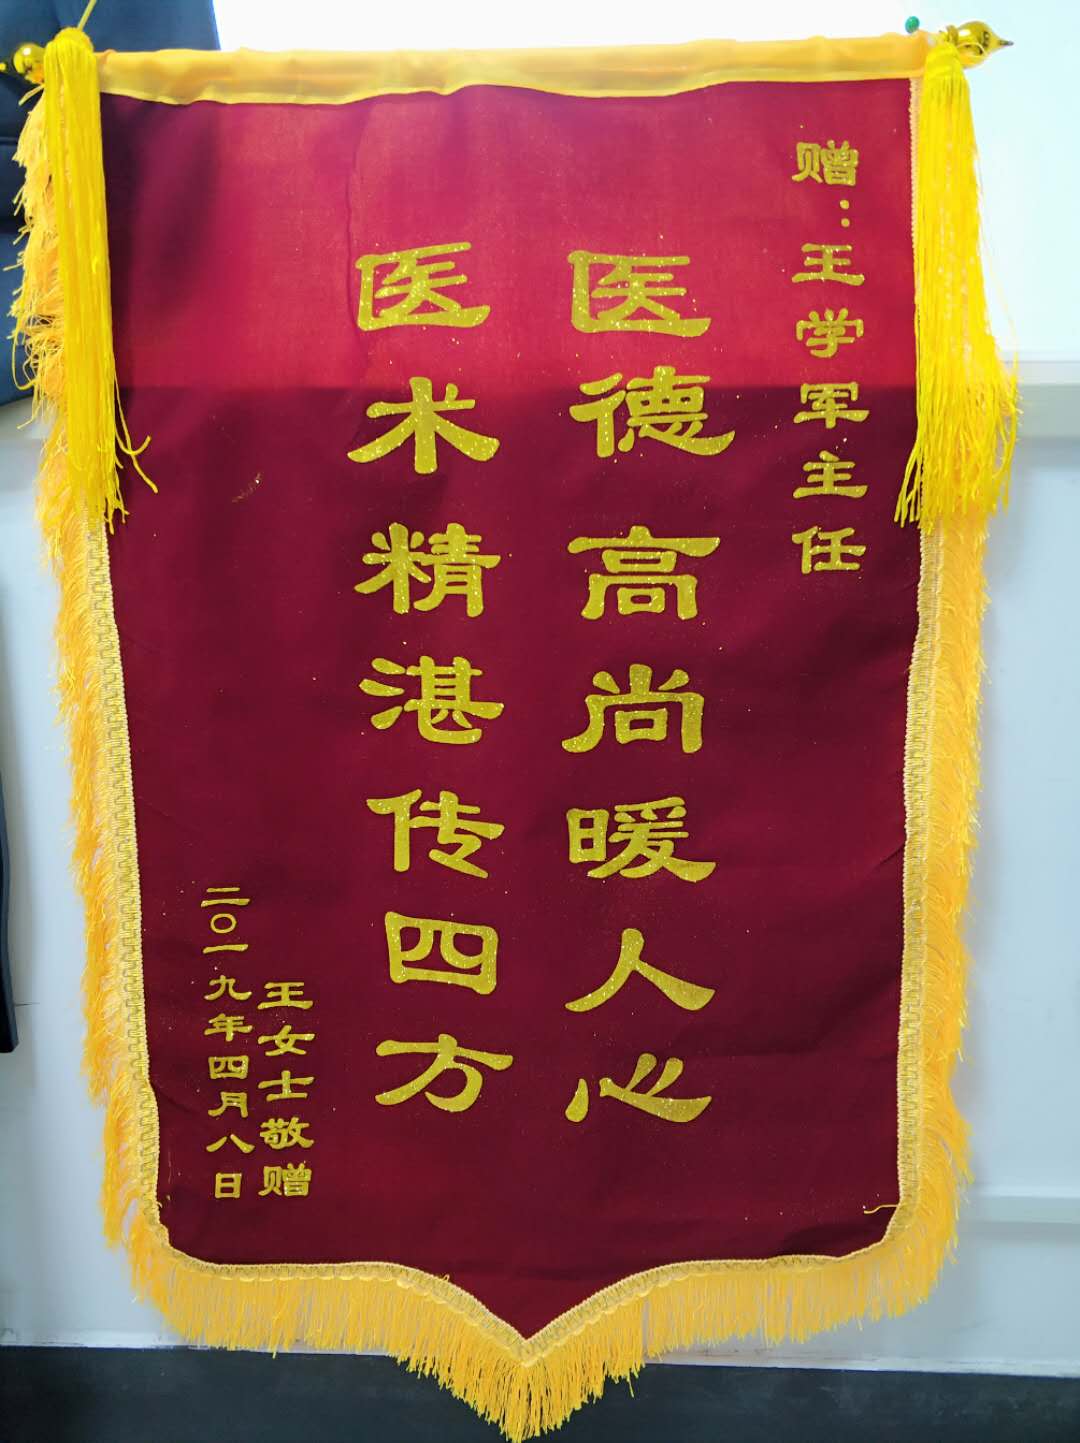 赠：王学军主任
医德高尚暖人心
医术精湛传四方
王女士敬赠
二〇一九年四月八日